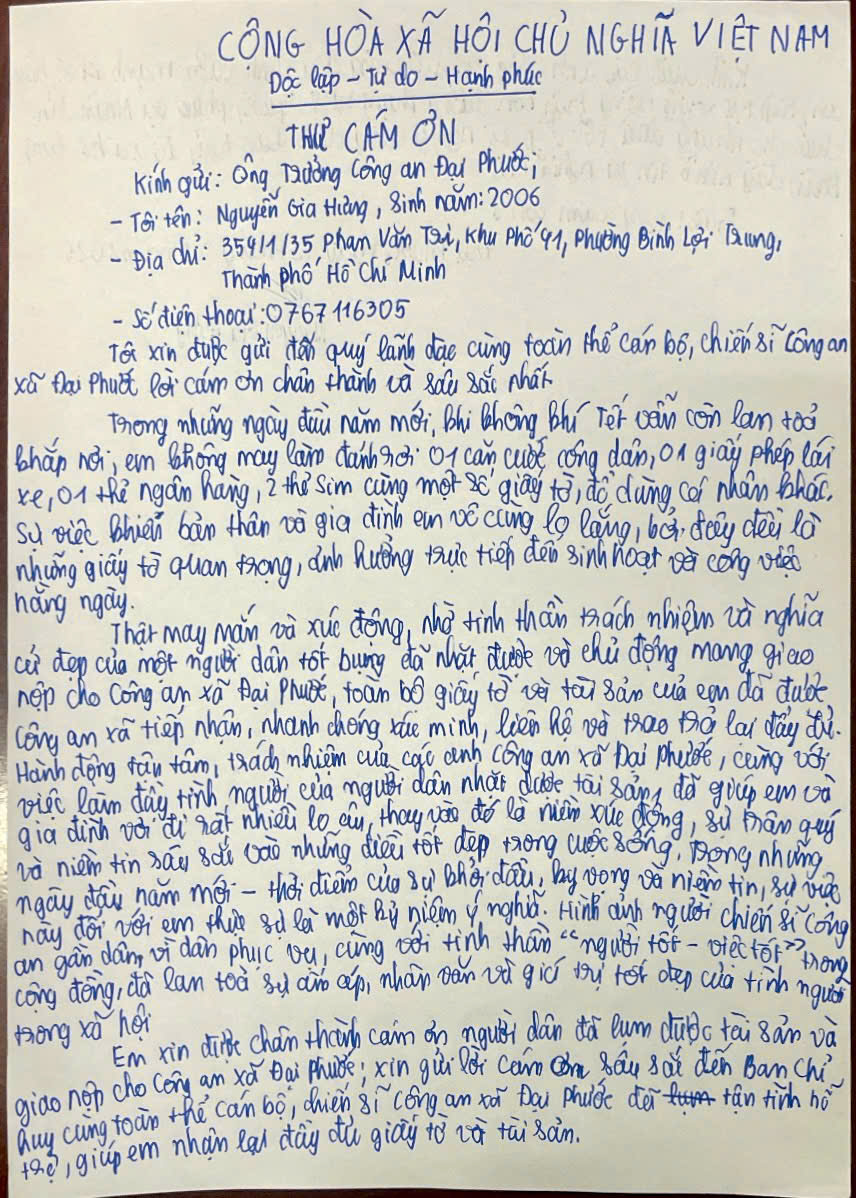 CÔNG HÒA XÃ HỘI CHỦ NGHĨA VIỆT NAM
Độc lập - Tự do - Hạnh phúc
THƯ CẢM ƠN
Kính gửi: Ông Trưởng Công an Đại Phước,
- Tôi tên: Nguyễn Gia Hưng, Sinh năm: 2006
- Địa chỉ: 359/1/35 Phan Văn Trị, Khu Phố 41, Phường Bình Lợi Trung,
Thành phố Hồ Chí Minh
- Số điện thoại: 0767116305
Tôi xin được gửi đến quý lãnh đạo cùng toàn thể cán bộ, chiến sĩ Công an
xã Đại Phước lời cảm ơn chân thành và sâu sắc nhất.
Trong những ngày đầu năm mới, khi không khí Tết vẫn còn lan toả
khắp nơi, em không may làm đánh rơi 01 căn cước công dân, 01 giấy phép lái
xe, 01 thẻ ngân hàng, 2 thẻ sim cùng một số giấy tờ, đồ dùng cá nhân khác.
Sự việc khiến bản thân và gia đình em vô cùng lo lắng, bởi đây đều là
những giấy tờ quan trọng, ảnh hưởng trực tiếp đến sinh hoạt và công việc
hằng ngày.
Thật may mắn và xúc động, nhờ tinh thần trách nhiệm và nghĩa
cử đẹp của một người dân tốt bụng đã nhặt được và chủ động mang giao
nộp cho Công an xã Đại Phước, toàn bộ giấy tờ và tài sản của em đã được
Công an xã tiếp nhận, nhanh chóng xác minh, liên hệ và trao trả lại đầy đủ.
Hành động tận tâm, trách nhiệm của các anh Công an xã Đại Phước, cùng với
việc làm đầy tình người của người dân nhặt được tài sản, đã giúp em và
gia đình vơi đi rất nhiều lo âu, thay vào đó là niềm xúc động, sự trân quý
và niềm tin sâu sắc vào những điều tốt đẹp trong cuộc sống. Trong những
ngày đầu năm mới - thời điểm của sự khởi đầu, kỳ vọng và niềm tin, sự việc
này đối với em thực sự là một kỷ niệm ý nghĩa. Hình ảnh người chiến sĩ Công
an gần dân, vì dân phục vụ, cùng với tinh thần "người tốt - việc tốt" trong
cộng đồng, đã lan toả sự ấm áp, nhân văn và giá trị tốt đẹp của tình người
trong xã hội
Em xin được chân thành cảm ơn người dân đã lụm được tài sản và
giao nộp cho Công an xã Đại Phước; xin gửi lời cảm ơn sâu sắc đến Ban Chỉ
huy cùng toàn thể cán bộ, chiến sĩ Công an xã Đại Phước đã lụm tận tình hỗ
trợ, giúp em nhận lại đầy đủ giấy tờ và tài sản.